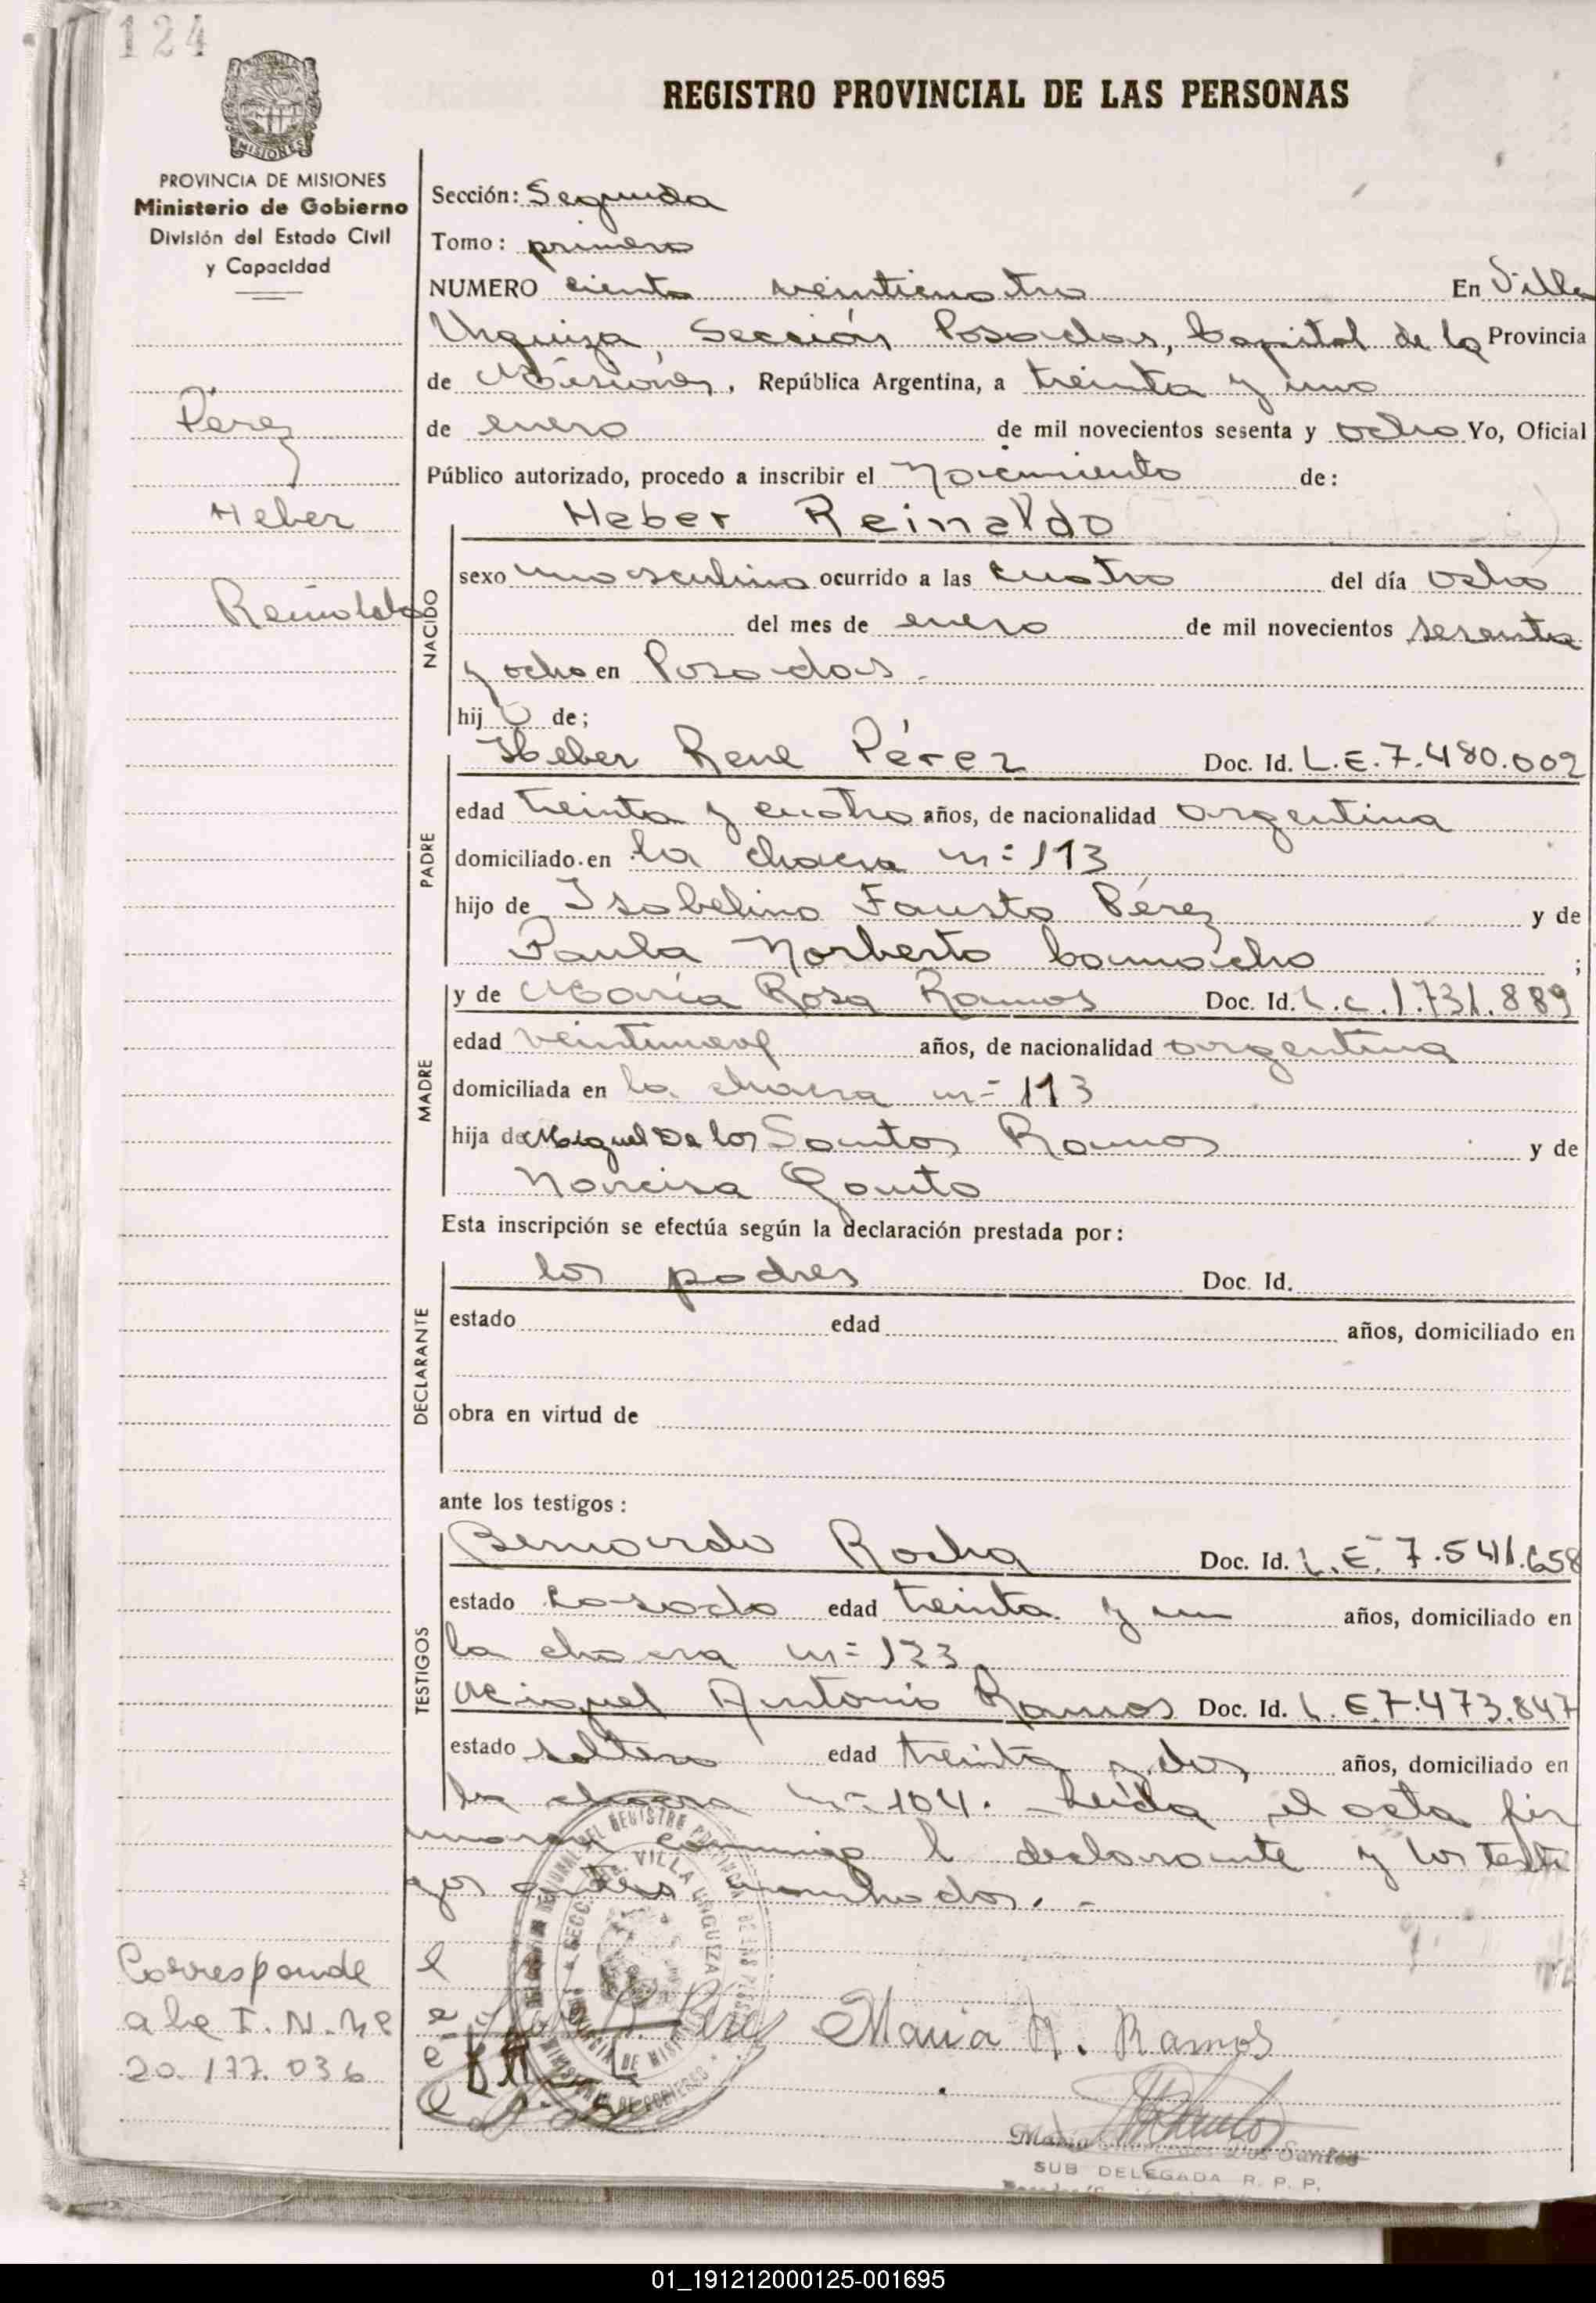 124
REGISTRO PROVINCIAL DE LAS PERSONAS
MISIONES
PROVINCIA DE MISIONES
Ministerio de Gobierno
División del Estado Civil
y Capacidad
Pérez
Heber
Reinaldo
Sección: Segunda
Tomo: primero
NUMERO ciento veinticuatro En Villa
Urquiza, Sección Posadas, Capital de la Provincia
de Misiones, República Argentina, a treinta y uno
de enero de mil novecientos sesenta y ocho Yo, Oficial
Público autorizado, procedo a inscribir el Nacimiento de:
NACIDO
Heber Reinaldo
sexo masculino ocurrido a las cuatro del día ocho
del mes de enero de mil novecientos sesenta
y ocho en Posadas.
hijo de;
PADRE
Heber Rene Pérez Doc. Id. L.E. 7.480.002
edad treinta y cuatro años, de nacionalidad argentina
domiciliado en la chacra n= 113
hijo de Isabelino Fausto Pérez y de
Paula Norberta Camacho ;
MADRE
y de María Rosa Ramos Doc. Id. L.C. 1.731.889
edad veintinueve años, de nacionalidad argentina
domiciliada en la chacra n= 113
hija de Miguel De los Santos Ramos y de
Narcisa Gauto
Esta inscripción se efectúa según la declaración prestada por:
DECLARANTE
los padres Doc. Id.
estado edad años, domiciliado en
obra en virtud de
ante los testigos:
TESTIGOS
Bernardo Rocha Doc. Id. L.E. 7.541.658
estado casado edad treinta y un años, domiciliado en
la chacra n= 123
Miguel Antonio Ramos Doc. Id. L.E. 7.473.847
estado soltero edad treinta y dos años, domiciliado en
la chacra n= 104. Leída el acta fir
man conmigo l declarante y los testi
gos antes nombrados. -
VILLA URQUIZA
Corresponde
a la I. N. Nº
20.177.036
Perez
Maria R. Ramos
Dos Santos
SUB DELEGADA R. P. P.
01_191212000125-001695